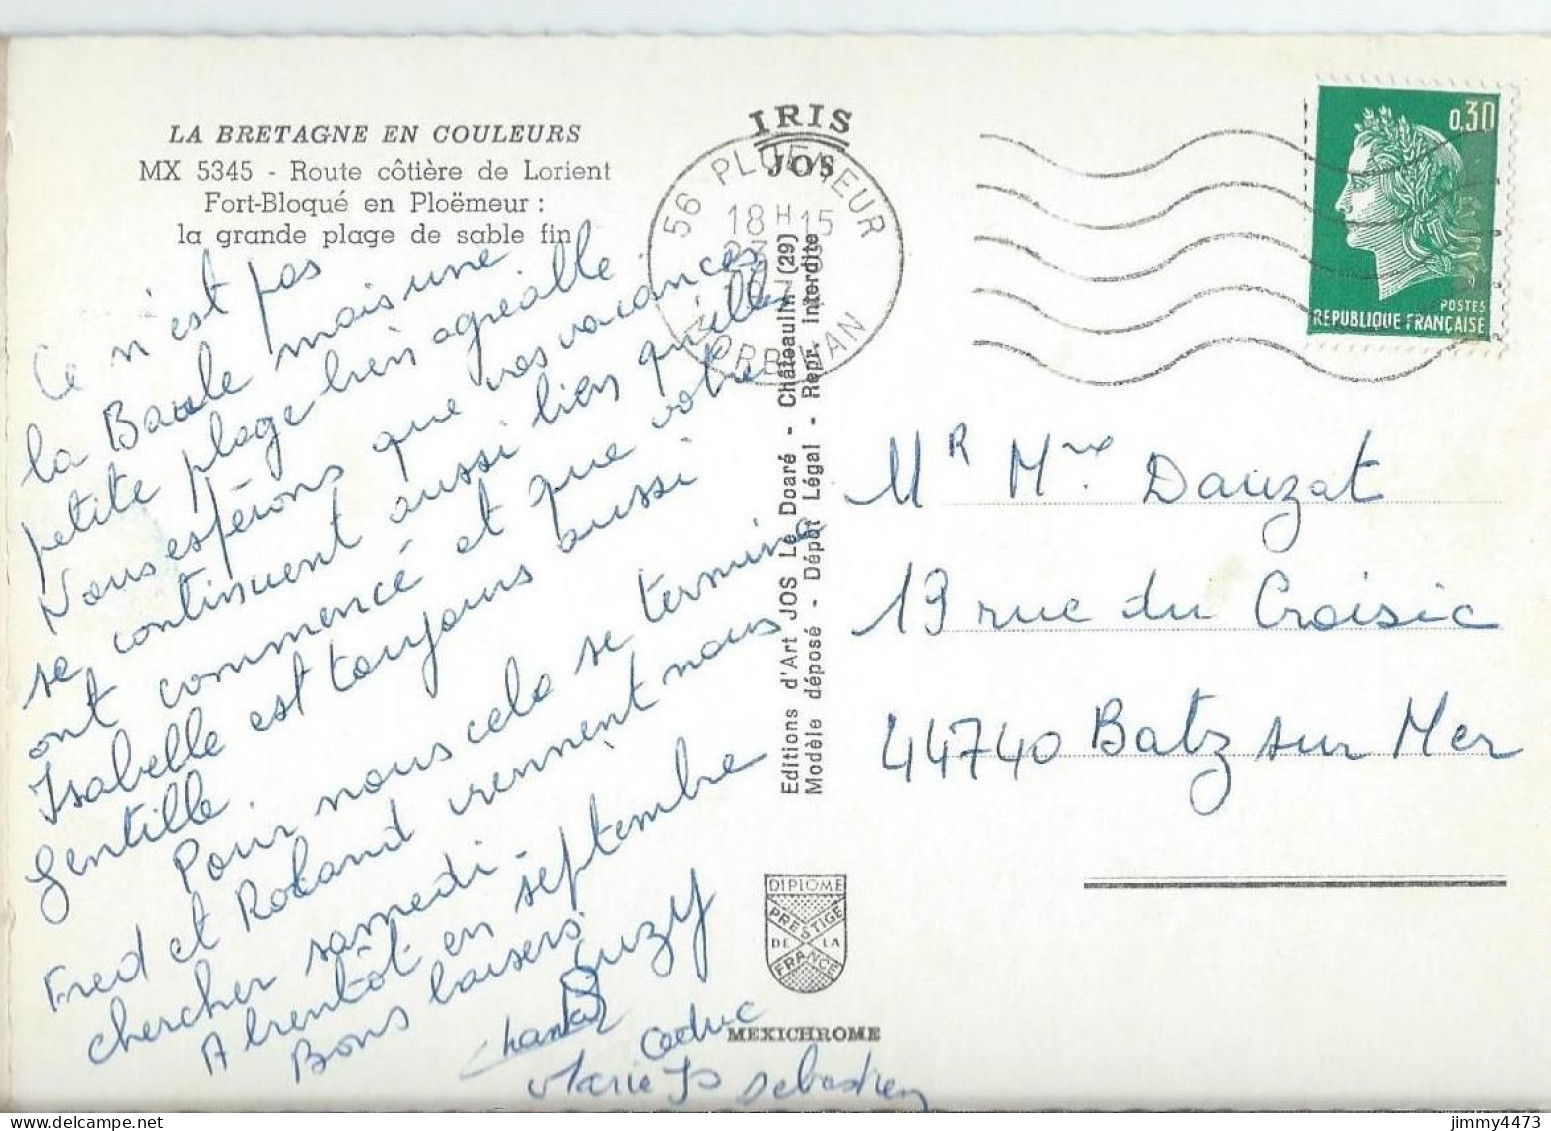 LA BRETAGNE EN COULEURS
MX 5345 - Route côtière de Lorient
Fort-Bloqué en Ploëmeur :
la grande plage de sable fin
Ce n'est pas
la Baule mais une
petite plage bien agréable.
Nous espérons que vos vacances
se continuent aussi bien qu'elles
ont commencé et que votre
Isabelle est toujours aussi
gentille.
Pour nous cela se termine
Fred et Roland viennent nous
chercher samedi.
A bientôt en septembre
Bons baisers
Suzy
Chantal
Marie Jo Sebastien
IRIS
JOS
56 PLOEMEUR
18 H 15
23
MORBIHAN
Editions d'Art JOS Le Doaré - Châteaulin (29)
Modèle déposé - Dépôt Légal - Repr. Interdite
DIPLOME
PRESTIGE
DE LA
FRANCE
MEXICHROME
0,30
POSTES
REPUBLIQUE FRANÇAISE
Mr Mme Dauzat
19 rue du Croisic
44740 Batz sur Mer
jimmy4473